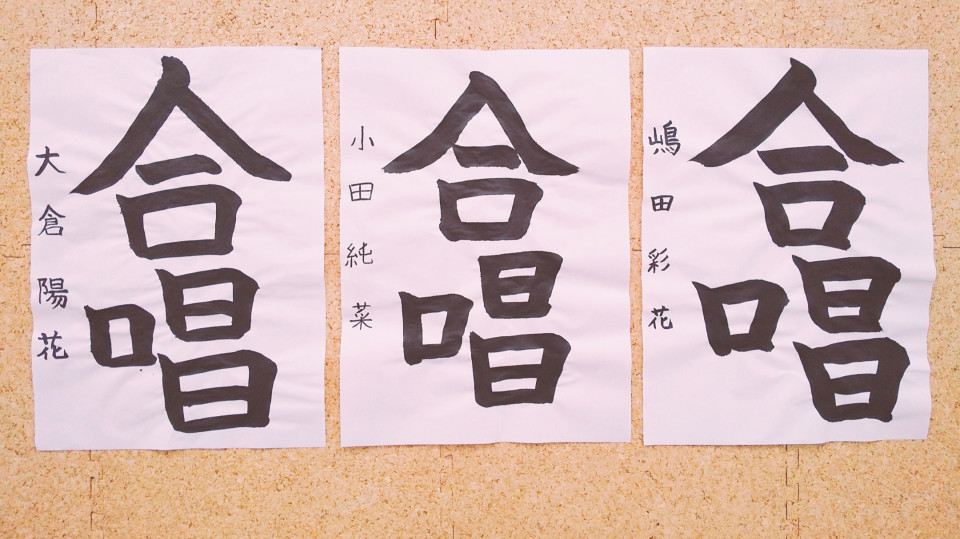 合唱
嶋田彩花
合唱
小田純菜
合唱
大倉陽花